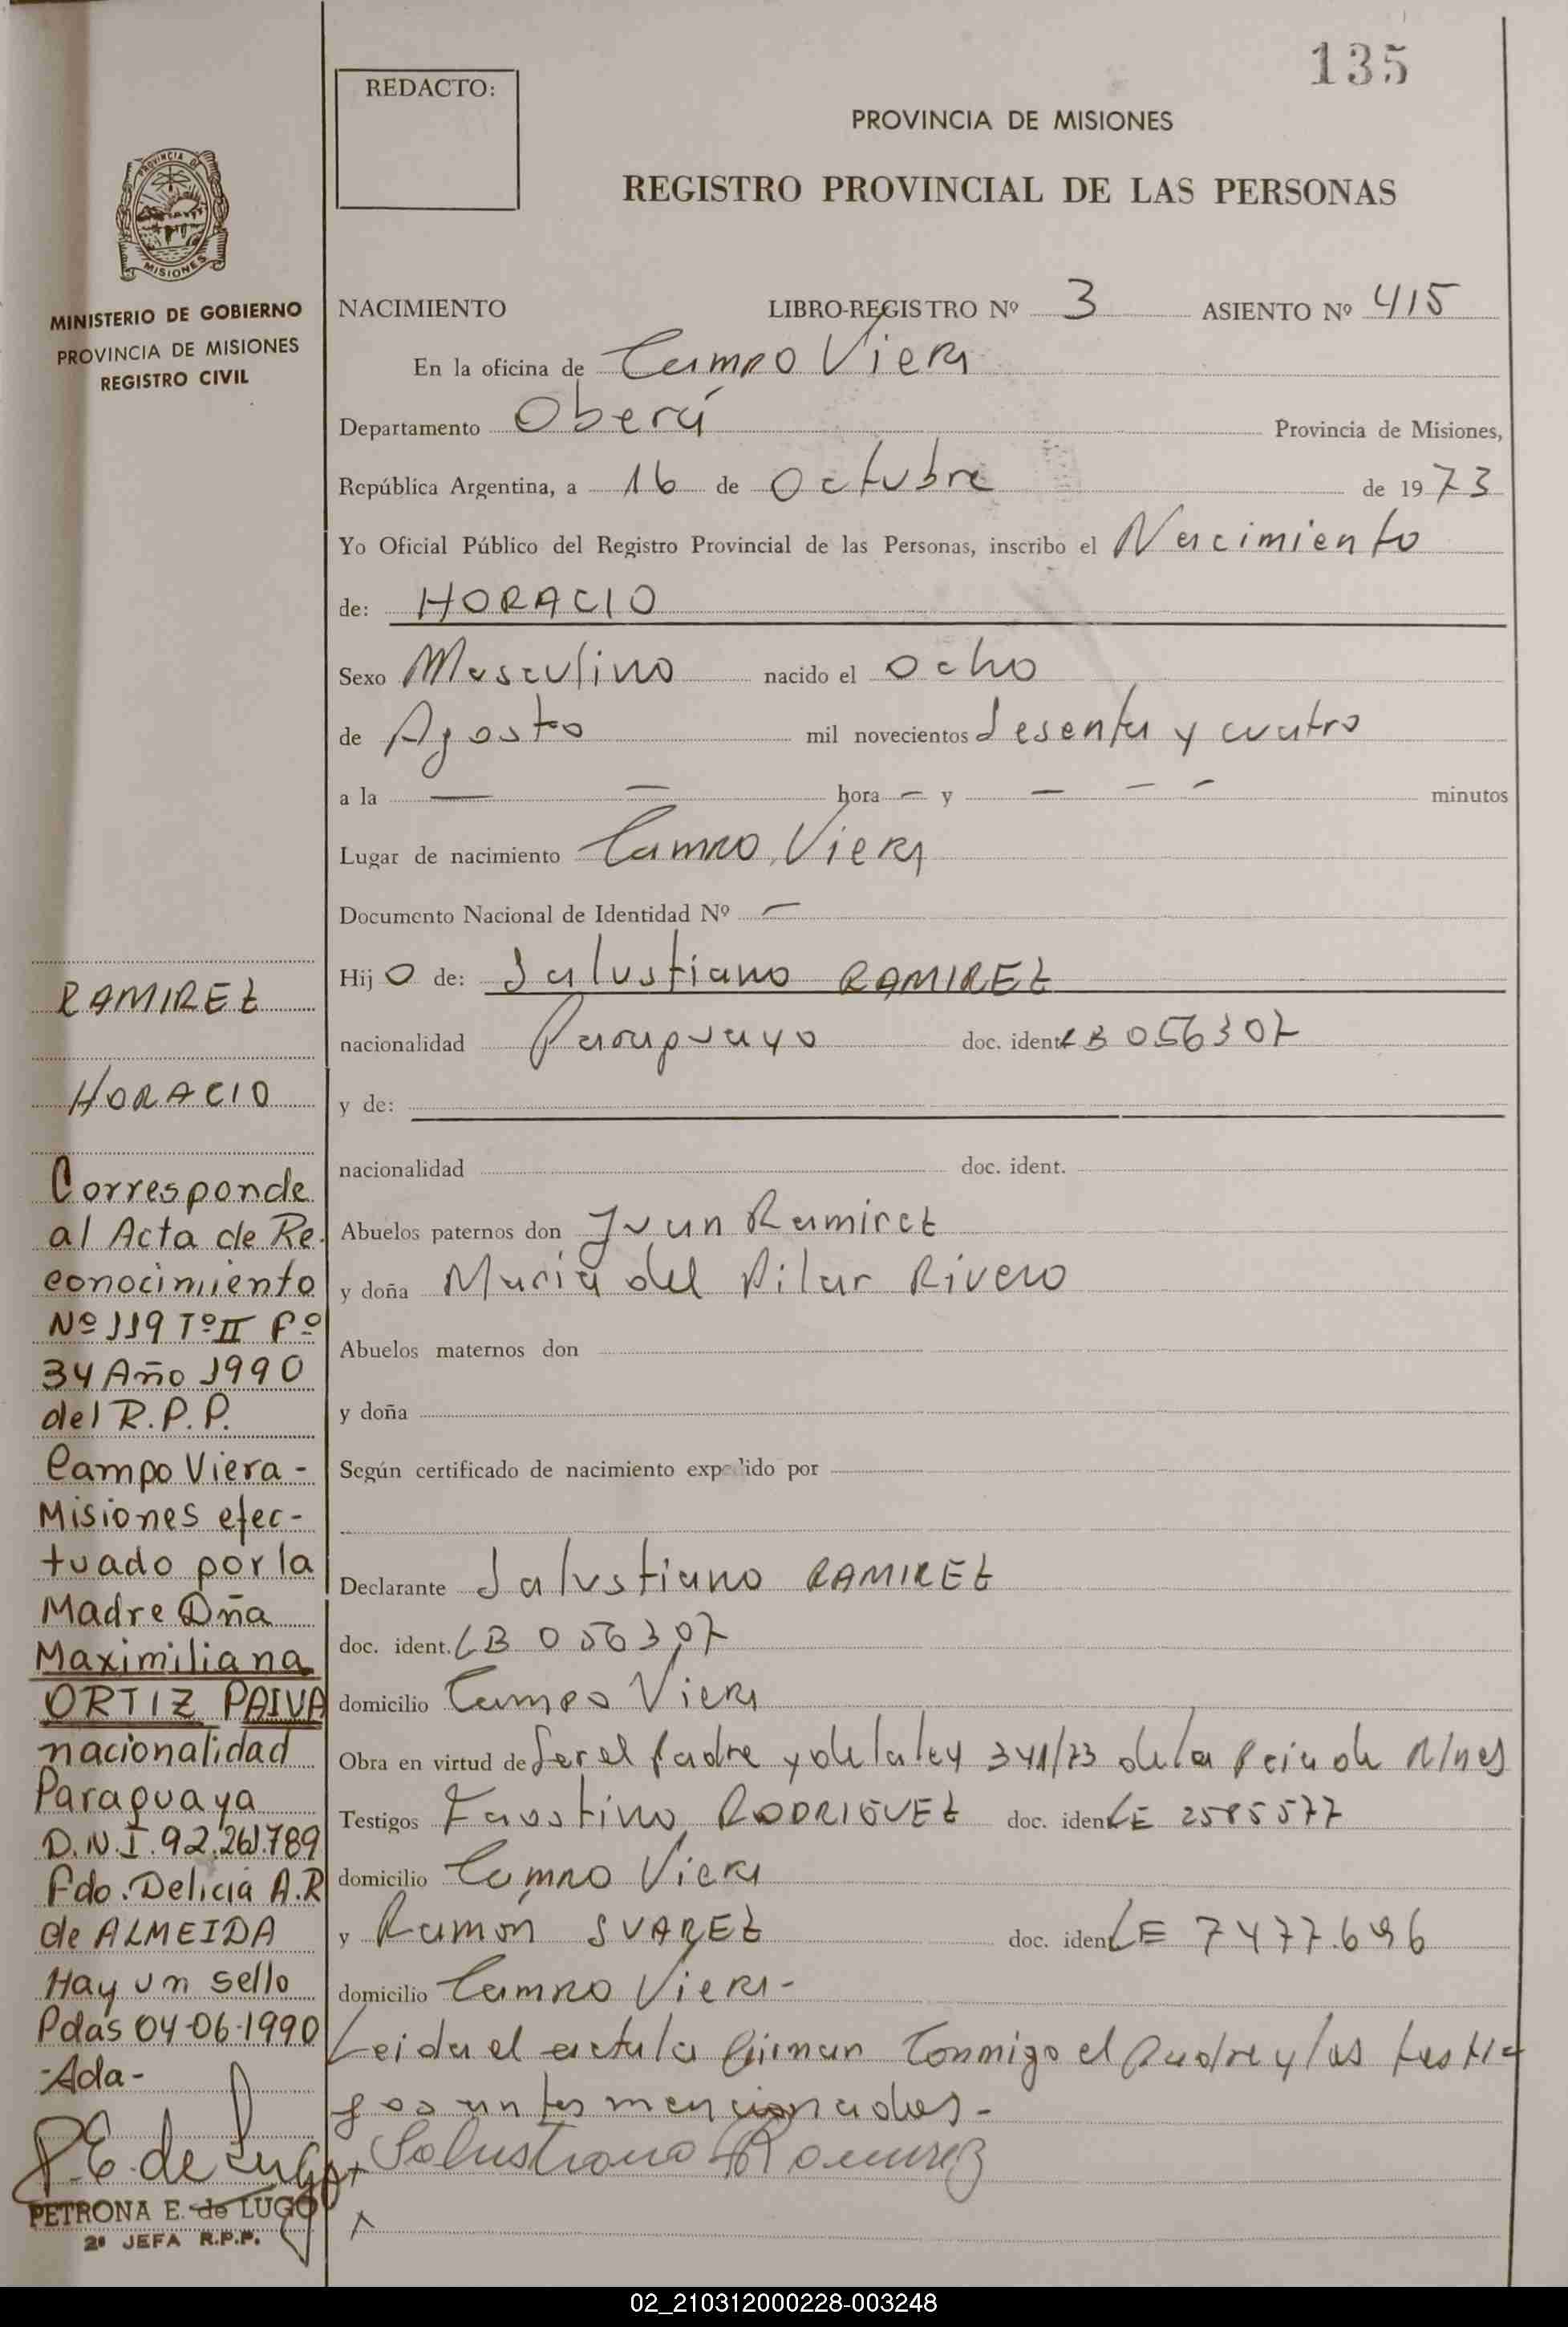 135
REDACTO:
PROVINCIA DE MISIONES
REGISTRO PROVINCIAL DE LAS PERSONAS
PROVINCIA DE
MISIONES
MINISTERIO DE GOBIERNO
PROVINCIA DE MISIONES
REGISTRO CIVIL
NACIMIENTO LIBRO-REGISTRO Nº 3 ASIENTO Nº 415
En la oficina de Campo Viera
Departamento Oberá Provincia de Misiones,
República Argentina, a 16 de Octubre de 1973
Yo Oficial Público del Registro Provincial de las Personas, inscribo el Nacimiento
de: HORACIO
Sexo Masculino nacido el ocho
de Agosto mil novecientos sesenta y cuatro
a la — — hora — y — — — minutos
Lugar de nacimiento Campo Viera
Documento Nacional de Identidad Nº —
Hijo de: Salustiano RAMIREZ
nacionalidad Paraguayo doc. ident. LB 056307
y de:
nacionalidad doc. ident.
Abuelos paternos don Juan Ramirez
y doña Maria del Pilar Rivero
Abuelos maternos don
y doña
Según certificado de nacimiento expedido por
Declarante Salustiano RAMIREZ
doc. ident. LB 056307
domicilio Campo Viera
Obra en virtud de ser el padre y de la ley 341/73 de la Pcia de M/nes
Testigos Faustino RODRIGUEZ doc. ident. LE 2585577
domicilio Campo Viera
y Ramón SUAREZ doc. ident. LE 7477.696
domicilio Campo Viera-
Leida el acta la firman conmigo el Padre y los testi-
gos antes mencionados.-
Salustiano Ramirez
x
RAMIREZ
HORACIO
Corresponde
al Acta de Re-
conocimiento
Nº 119 Tº II Fº
34 Año 1990
del R.P.P.
Campo Viera -
Misiones efec-
tuado por la
Madre Dña
Maximiliana
ORTIZ PAIVA
nacionalidad
Paraguaya
D.N.I. 92.261.789
Fdo. Delicia A.R
de ALMEIDA
Hay un sello
Pdas 04-06-1990
-Ada-
P.E. de Lugo
PETRONA E. de LUGO
2ª JEFA R.P.P.
02_210312000228-003248